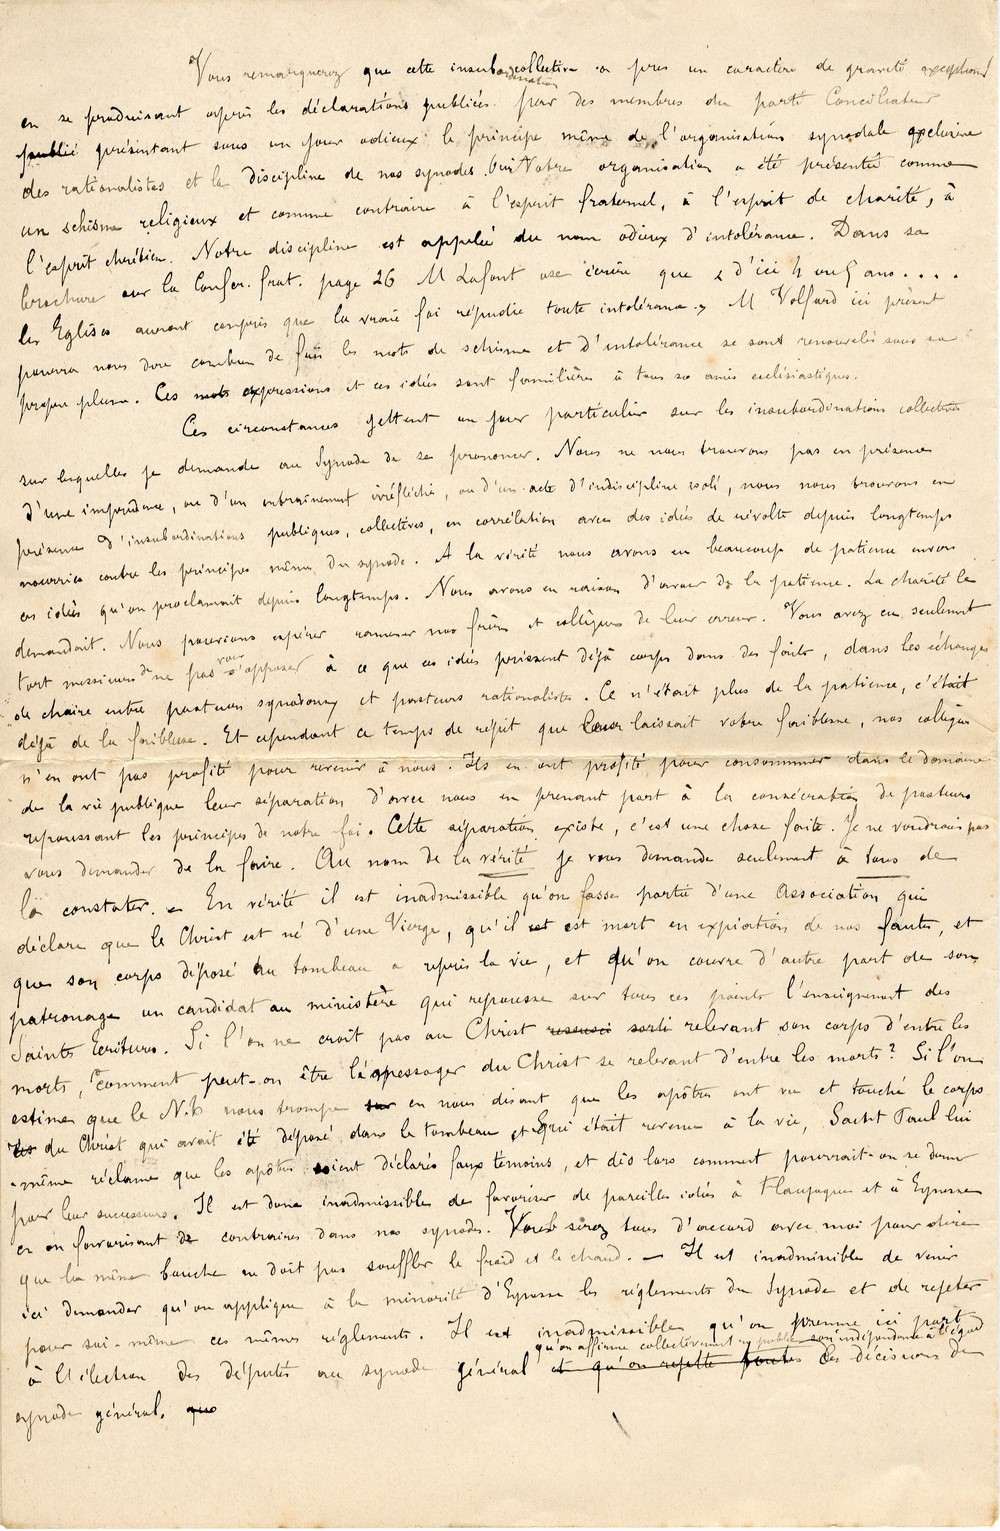 Vous remarquerez que cette insubordination collective a pris un caractère de gravité exceptionnel
en se produisant après les déclarations publiées par des membres du parti Conciliateur
publié présentant sous un jour odieux le principe même de l'organisation synodale exclusive
des rationalistes et la discipline de nos synodes. Oui Votre organisation a été présentée comme
un schisme religieux et comme contraire à l'esprit fraternel, à l'esprit de charité, à
l'esprit chrétien. Notre discipline est appelée du nom odieux d'intolérance. Dans sa
brochure sur la Confér. frat. page 26 M Lafont ose écrire que « d'ici 4 ou 5 ans . . . .
les Eglises auront compris que la vraie foi répudie toute intolérance ». M Volfard ici présent
pourra nous dire combien de fois les mots de schisme et d'intolérance se sont renouvelés sous sa
propre plume. Ces mots expressions et ces idées sont familières à tous ses amis ecclésiastiques.
Ces circonstances jettent un jour particulier sur les insubordinations collectives
sur lesquelles je demande au Synode de se prononcer. Nous ne nous trouvons pas en présence
d'une imprudence, ou d'un entraînement irréfléchi, ou d'un acte d'indiscipline isolé, nous nous trouvons en
présence d'insubordinations publiques, collectives, en corrélation avec des idées de révolte depuis longtemps
nourries contre les principes mêmes du synode. A la vérité nous avons eu beaucoup de patience envers
ces idées qu'on proclamait depuis longtemps. Nous avons eu raison d'avoir de la patience. La charité le
demandait. Nous pouvions espérer ramener nos frères et collègues de leur erreur. Vous avez eu seulement
tort messieurs de ne pas vous s'opposer à ce que ces idées prissent déjà corps dans des faits, dans les échanges
de chaire entre pasteurs synodaux et pasteurs rationalistes. Ce n'était plus de la patience, c'était
déjà de la faiblesse. Et cependant ce temps de répit que leur laissait votre faiblesse, nos collègues
n'en ont pas profité pour revenir à nous. Ils en ont profité pour consommer dans le domaine
de la vie publique leur séparation d'avec nous en prenant part à la consécration de pasteurs
repoussant les principes de notre foi. Cette séparation existe, c'est une chose faite. Je ne voudrais pas
vous demander de la faire. Au nom de la vérité je vous demande seulement à tous de
la constater. — En vérité il est inadmissible qu'on fasse partie d'une Association qui
déclare que le Christ est né d'une Vierge, qu'il est est mort en expiation de nos fautes, et
que son corps déposé au tombeau a repris la vie, et qu'on couvre d'autre part de son
patronage un candidat au ministère qui repousse sur tous ces points l'enseignement des
Saintes Ecritures. Si l'on ne croit pas au Christ ressusci sorti relevant son corps d'entre les
morts, comment peut-on être le messager du Christ se relevant d'entre les morts? Si l'on
estime que le N.T. nous trompe sur en nous disant que les apôtres ont vu et touché le corps
du Christ qui avait été déposé dans le tombeau et qui était revenu à la vie, Saint Paul lui
-même réclame que les apôtres soient déclarés faux témoins, et dès lors comment pourrait-on se donner
pour leur successeur. Il est donc inadmissible de favoriser de pareilles idées à et à Eynesse
en en favorisant de contraires dans nos synodes. Vous serez tous d'accord avec moi pour dire
que la même bouche ne doit pas souffler le froid et le chaud. — Il est inadmissible de venir
ici demander qu'on applique à la minorité d'Eynesse les réglements du Synode et de rejeter
pour soi-même ces mêmes réglements. Il est inadmissible qu'on prenne ici part
à l'élection des députés au synode général et qu'on rejette toutes qu'on affirme collectivement en public son indépendance à l'égard des décisions du
synode général. que